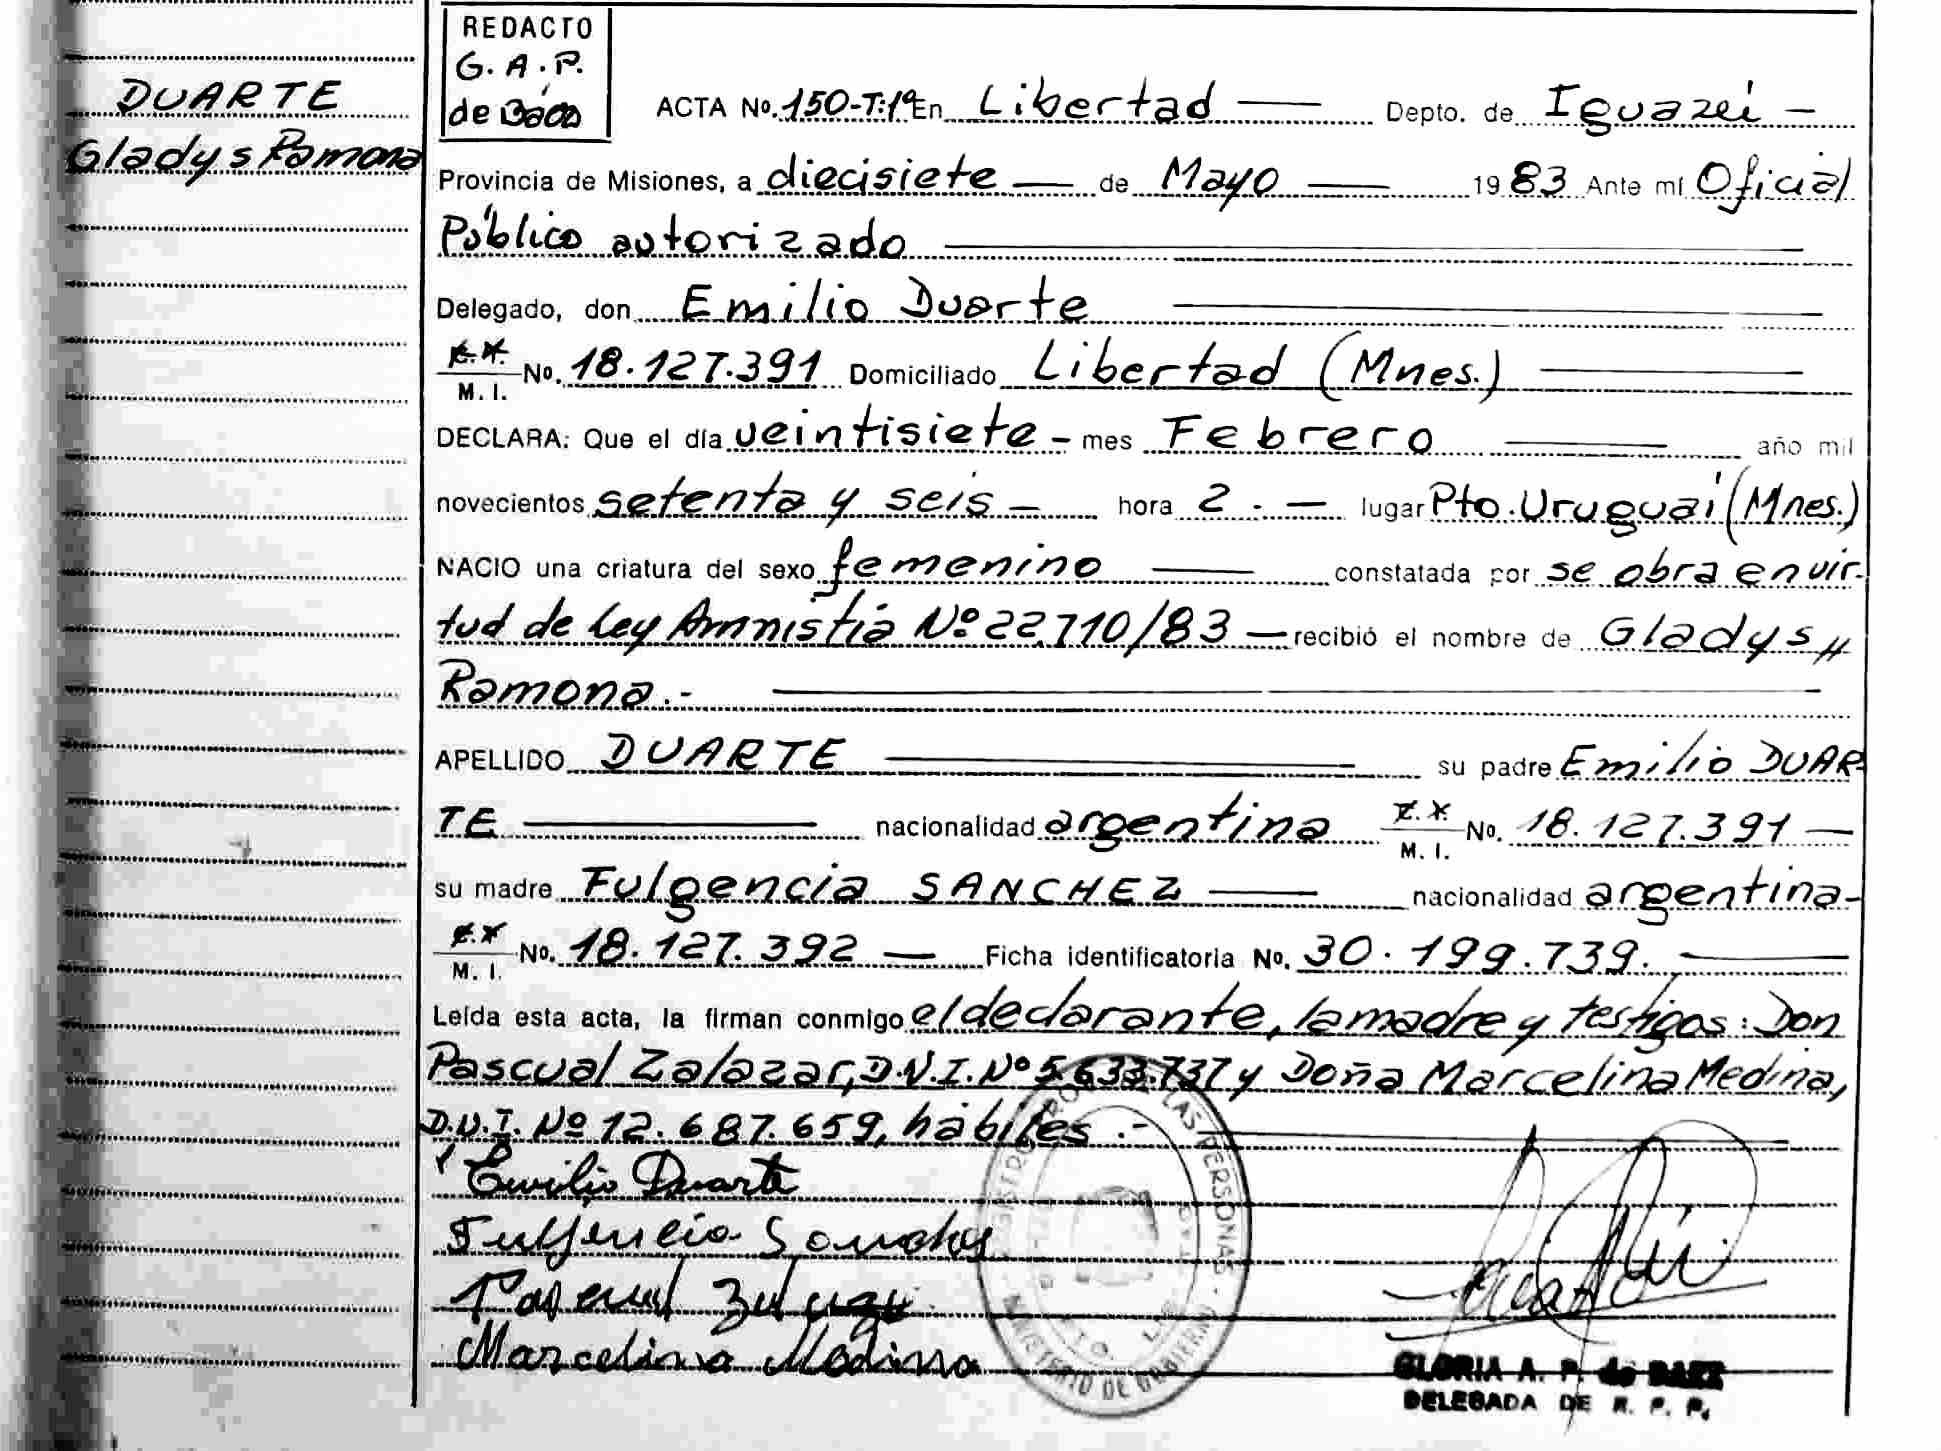 DUARTE
Gladys Ramona
REDACTO
G. A. P.
de Báez
ACTA No. 150-T:1º En Libertad — Depto. de Iguazú —
Provincia de Misiones, a diecisiete — de Mayo — 1983 Ante mí Oficial
Público autorizado
Delegado, don Emilio Duarte
M. I. No. 18.127.391 Domiciliado Libertad (Mnes.)
DECLARA: Que el día veintisiete - mes Febrero — año mil
novecientos setenta y seis — hora 2 . — lugar Pto. Uruguaí (Mnes.)
NACIO una criatura del sexo femenino — constatada por se obra en vir-
tud de Ley Amnistia Nº 22.710/83 — recibió el nombre de Gladys //
Ramona.-
APELLIDO DUARTE — su padre Emilio DUAR-
TE — nacionalidad argentina M. I. No. 18.127.391 —
su madre Fulgencia SANCHEZ — nacionalidad argentina-
M. I. No. 18.127.392 — Ficha identificatoria No. 30.199.739. —
Leída esta acta, la firman conmigo el declarante, la madre y testigos: Don
Pascual Zalazar, D.N.I. Nº 5.633.737 y Doña Marcelina Medina,
D.N.I. Nº 12.687.659, hábiles.-
Emilio Duarte
Fulgencia Sanchez
Pascual Zalazar
Marcelina Medina
MINISTERIO DE GOBIERNO
LAS PERSONAS
GLORIA A. P. de BAEZ
DELEGADA DE R. P. P.